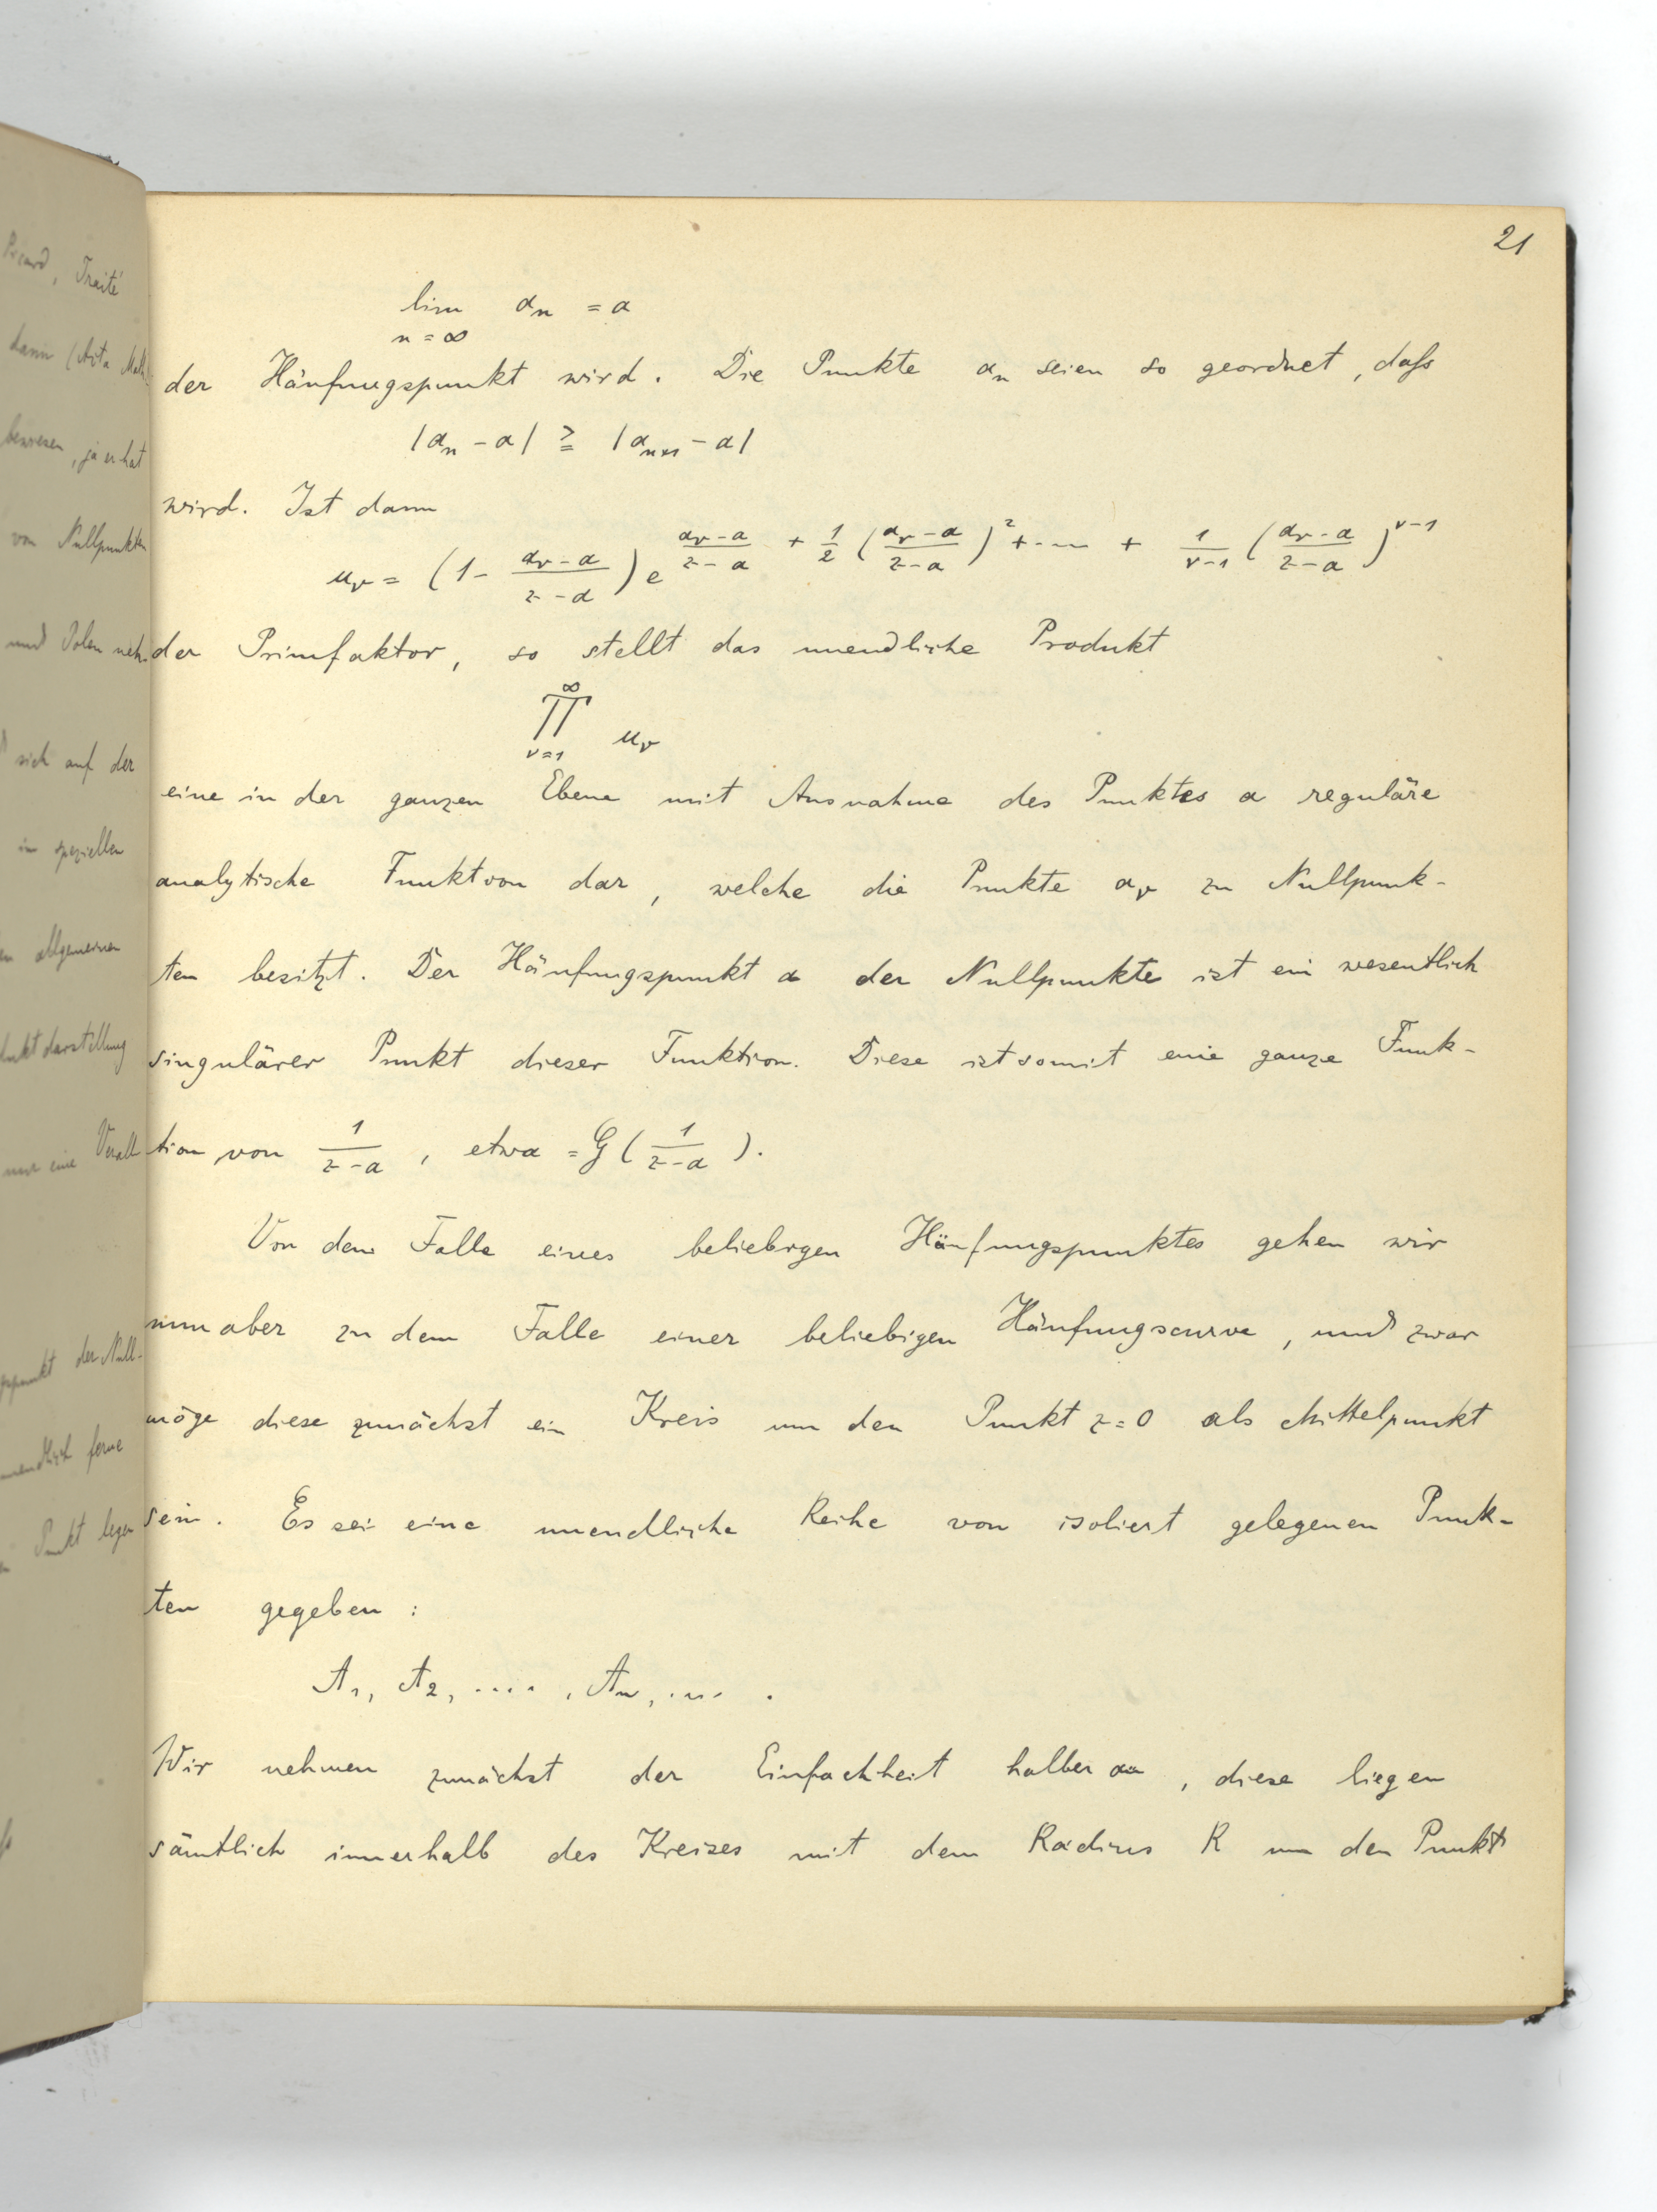 Picard, Traité
dann (Acta Math.
bewiesen, ja er hat
von Nullpunkten
und Polen neh-
sich auf der
in speziellen
allgemeinen
duktdarstellung
nur eine Verall-
der Null-
unendlich ferne
Punkt legen
21
lim aₙ = a
n = ∞
der Häufungspunkt wird. Die Punkte aₙ seien so geordnet, daſs
|aₙ - a| ≧ |aₙ₊₁ - a|
wird. Ist dann
u_ν = (1 - (a_ν - a)/(z - a)) e^{(a_ν - a)/(z - a) + 1/2 ((a_ν - a)/(z - a))² + ... + 1/(ν-1) ((a_ν - a)/(z - a))^{ν-1}}
der Primfaktor, so stellt das unendliche Produkt
∏_{ν=1}^{∞} u_ν
eine in der ganzen Ebene mit Ausnahme des Punktes a reguläre
analytische Funktion dar, welche die Punkte a_ν zu Nullpunk-
ten besitzt. Der Häufungspunkt a der Nullpunkte ist ein wesentlich
singulärer Punkt dieser Funktion. Diese ist somit eine ganze Funk-
tion von 1/(z - a), etwa = G(1/(z - a)).
Von dem Falle eines beliebigen Häufungspunktes gehen wir
nun aber zu dem Falle einer beliebigen Häufungscurve, und zwar
möge diese zunächst ein Kreis um den Punkt z = 0 als Mittelpunkt
sein. Es sei eine unendliche Reihe von isoliert gelegenen Punk-
ten gegeben:
A₁, A₂, ...., Aₙ, .... .
Wir nehmen zunächst der Einfachheit halber an, diese liegen
sämtlich innerhalb des Kreises mit dem Radius R um den Punkt